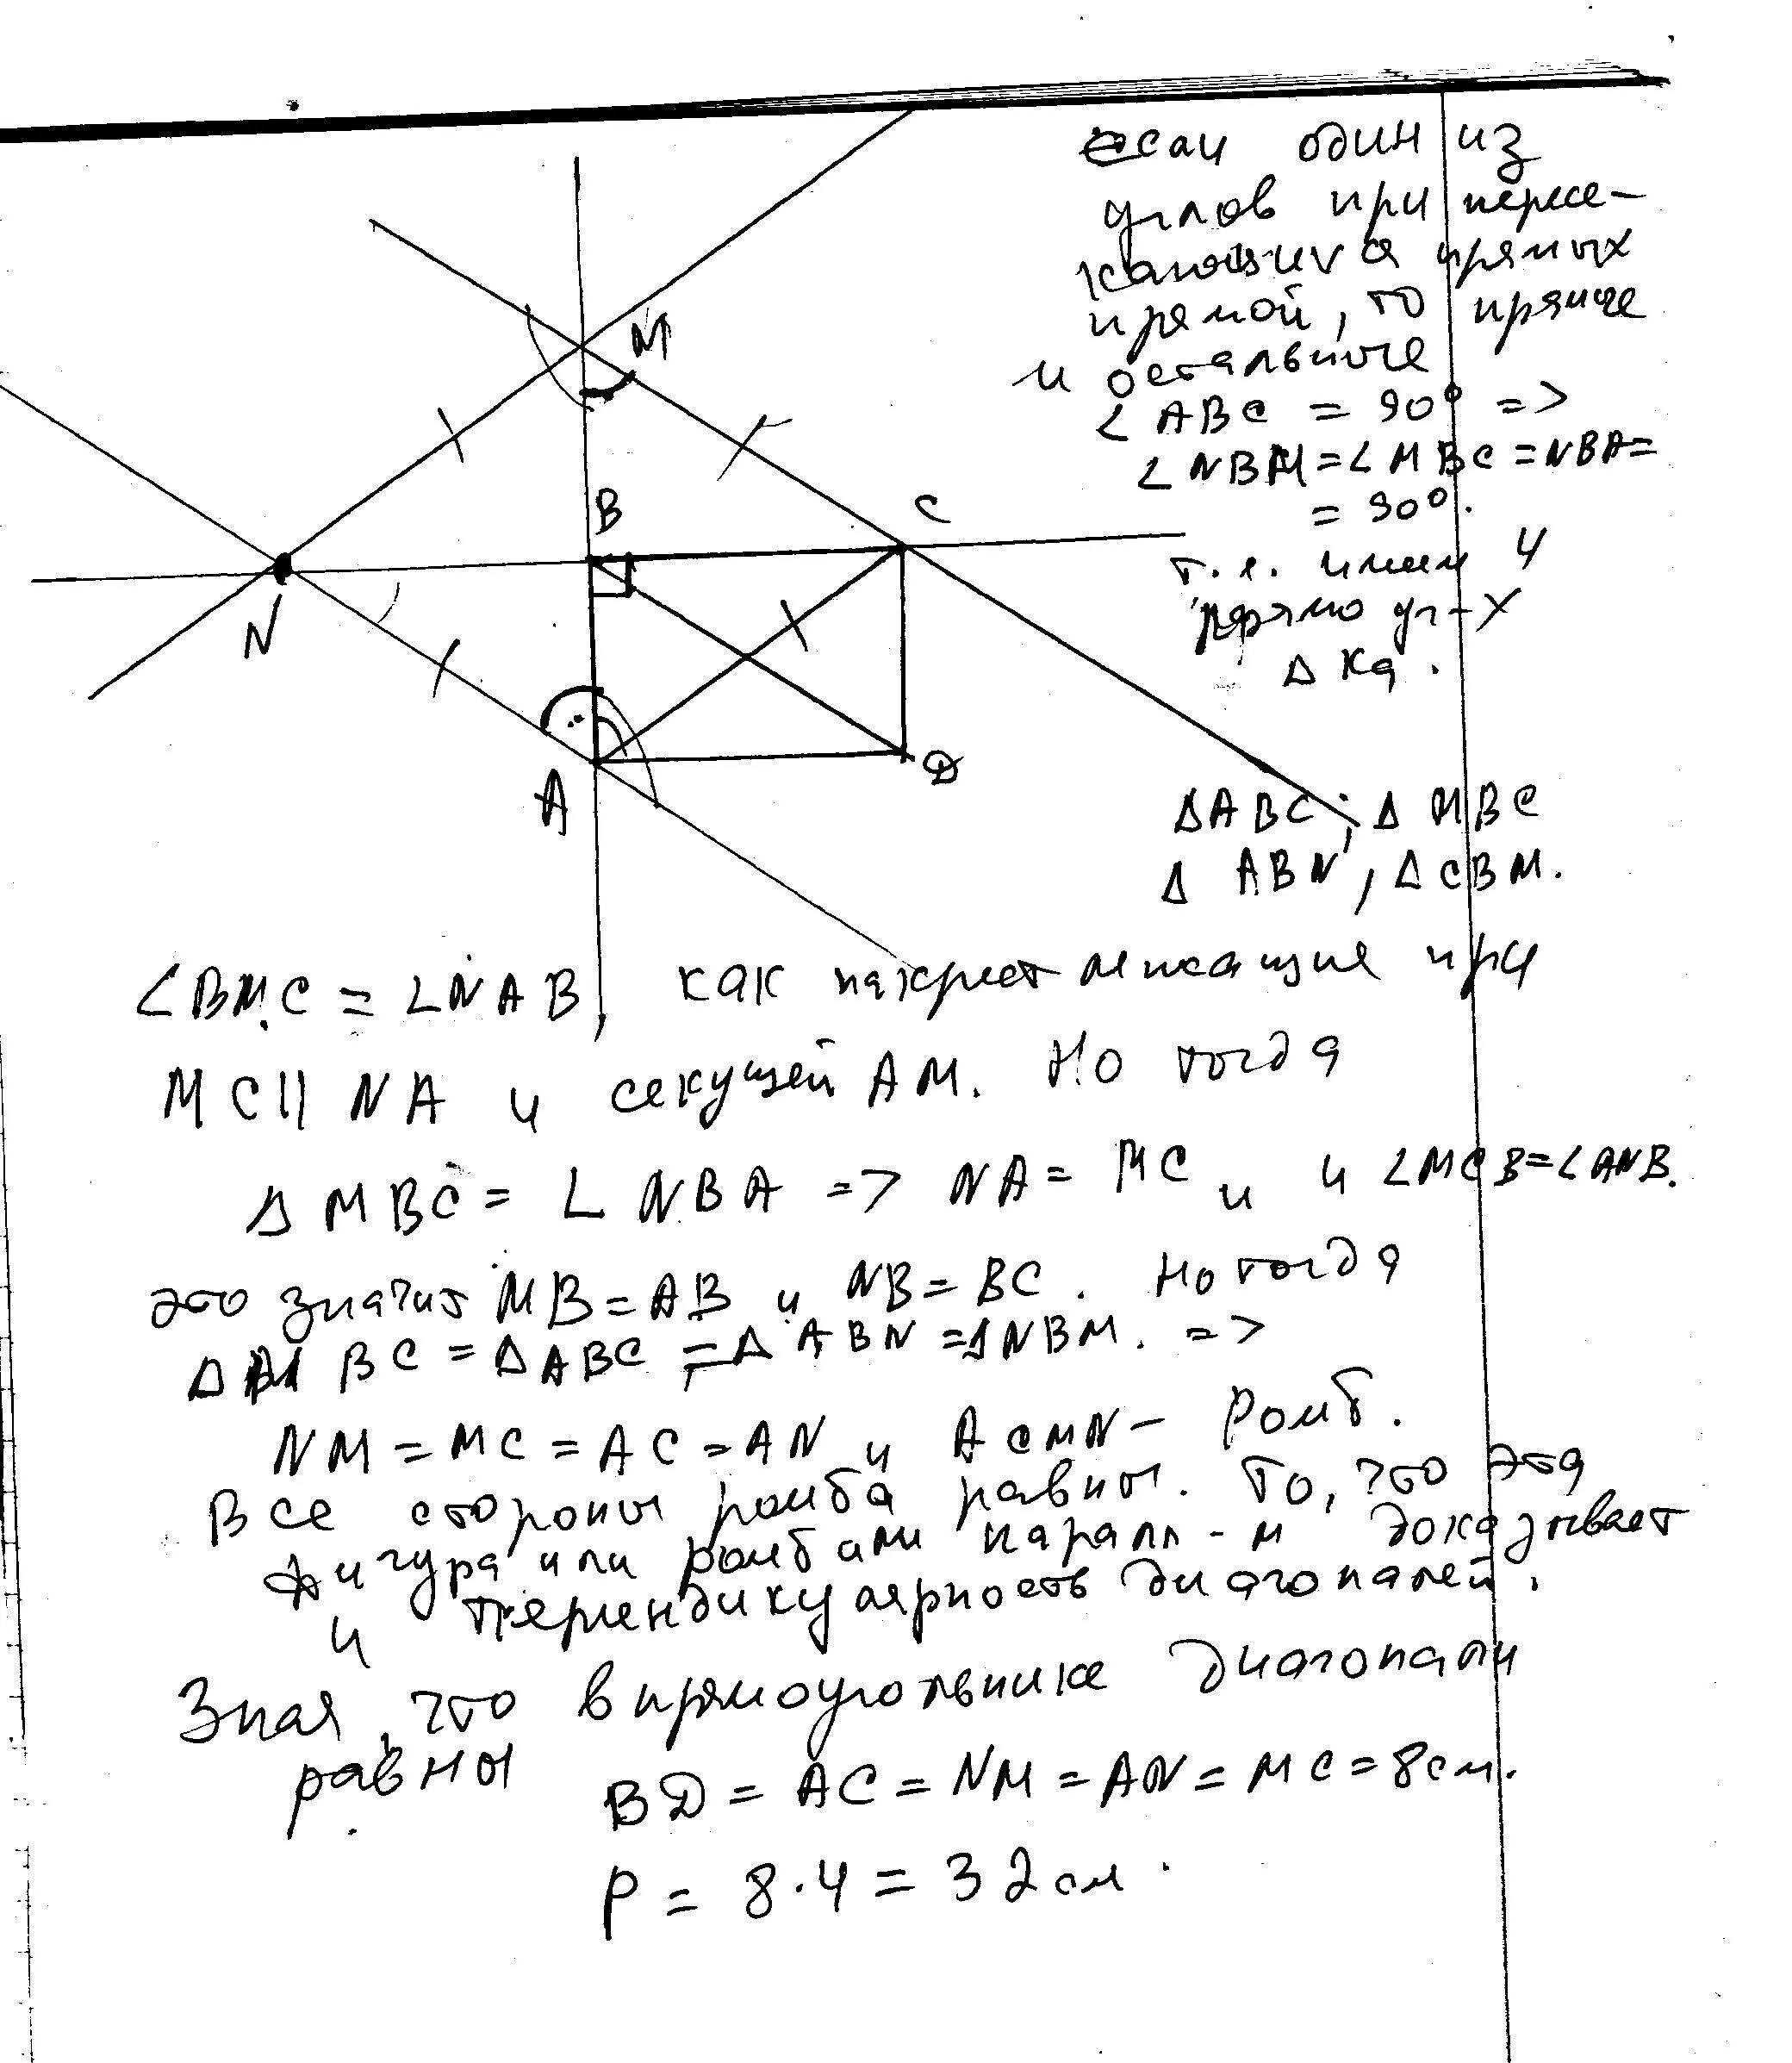 если один из
углов при пересе-
кающихся прямых
прямой, то прямые
и остальные
∠ABC = 90° =>
∠NBM = ∠MBC = NBA =
= 90°.
т.е. имеем 4
прямоуг-х
Δ ка.
M
B
C
N
A
D
ΔABC; ΔMBC
ΔABN, ΔCBM.
∠BMC = ∠NAB, как накрест лежащие при
MC || NA и секущей AM. Но тогда
ΔMBC = ∠NBA => NA = MC и и ∠MCB=∠ANB.
это значит MB = AB и NB = BC. Но тогда
ΔMBC = ΔABC = ΔABN = ΔNBM. =>
NM = MC = AC = AN и ACMN - Ромб.
Все стороны ромба равны. То, что эта
фигура или ромб или паралл-м доказывает
и перпендикулярность диагоналей.
Зная, что в прямоугольнике диагонали
равны
BD = AC = NM = AN = MC = 8см.
P = 8·4 = 32 см.